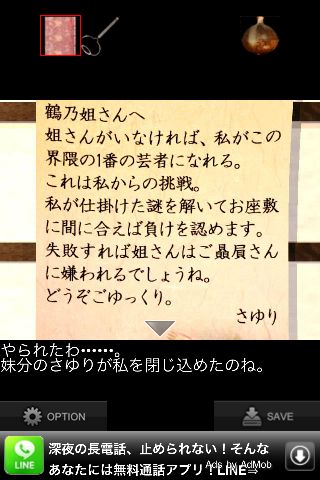 鶴乃姐さんへ
姐さんがいなければ、私がこの
界隈の1番の芸者になれる。
これは私からの挑戦。
私が仕掛けた謎を解いてお座敷
に間に合えば負けを認めます。
失敗すれば姐さんはご贔屓さん
に嫌われるでしょうね。
どうぞごゆっくり。
さゆり
やられたわ‥‥‥。
妹分のさゆりが私を閉じ込めたのね。
OPTION
SAVE
LINE
深夜の長電話、止められない！そんな
あなたには無料通話アプリ！LINE⇒
Ads by AdMob